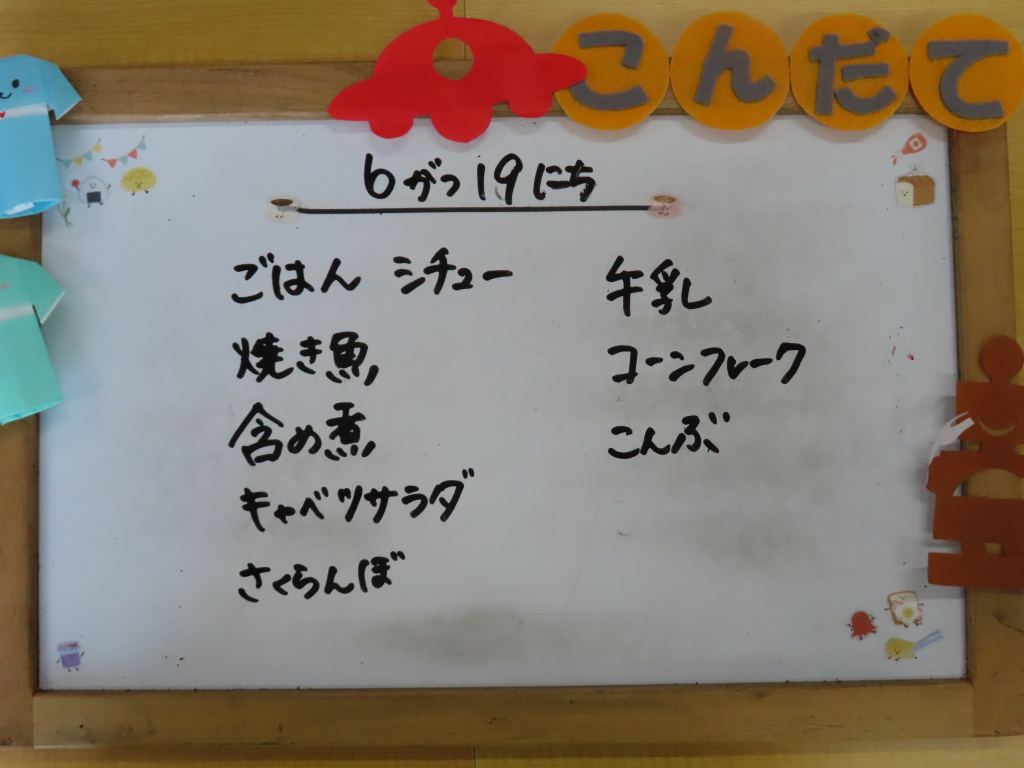 こんだて
6がつ19にち
ごはん シチュー
焼き魚
含め煮
キャベツサラダ
さくらんぼ
牛乳
コーンフレーク
こんぶ